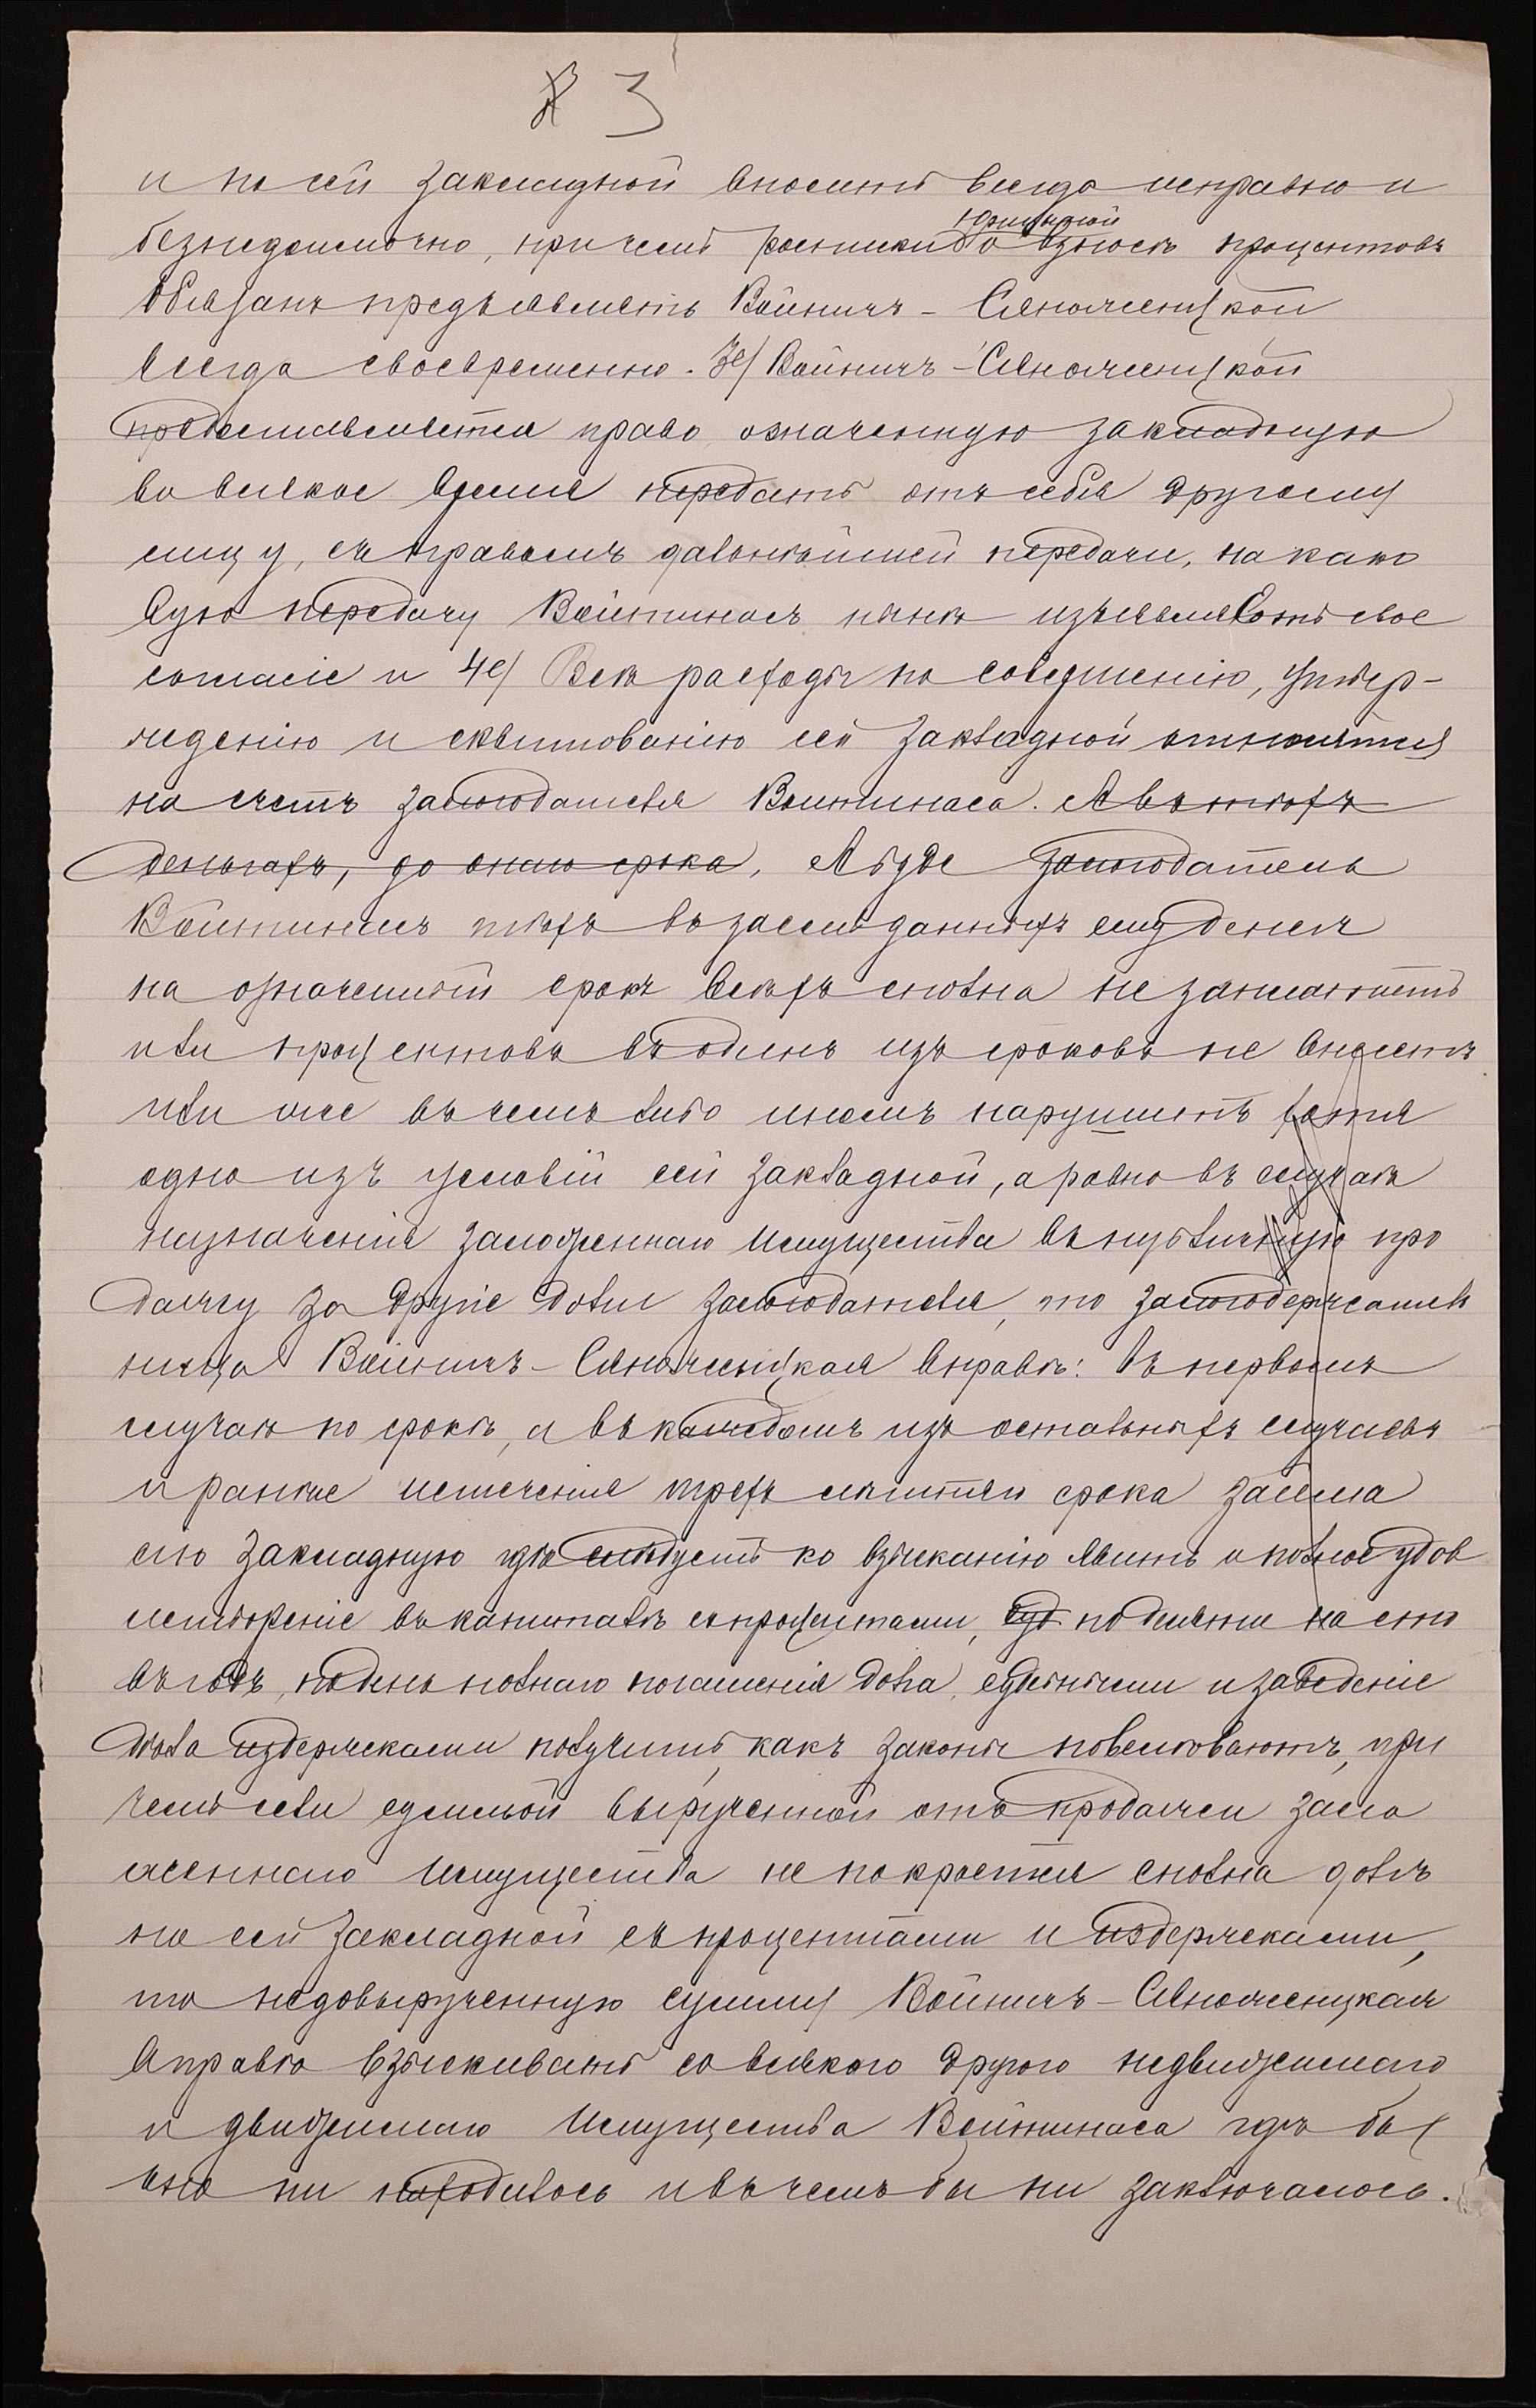 3
и по сей закладной вносить всегда исправно и
безнедоимочно, при чемъ росписки о взносѣ процентовъ
обязанъ предъявлять Войничъ-Сяноженцкой
всегда своевременно. 3е/ Войничъ-Сяноженцкой
предоставляется право означенную закладную
во всякое время передать отъ себя другому
лицу, съ правомъ дальнѣйшей передачи, на како
вую передачу Войтинасъ нынѣ изъявляетъ свое
согласіе и 4е/ Всѣ расходы по совершенію, утвер-
жденію и сквитованію сей закладной относятся
на счетъ залогодателя Войтинаса. А въ тѣхъ
деньгахъ, до онаго срока, А буде залогодатель
Войтинасъ тѣхъ въ заемъ данныхъ ему денегъ
на означенный срокъ всѣхъ сполна не заплатитъ
или процентовъ въ одинъ изъ сроковъ не внесетъ
или же въ чемъ либо иномъ нарушитъ хотя
одно изъ условій сей закладной, а равно въ случаѣ
назначенія заложеннаго имущества въ публичную про
дажу за другіе долги залогодателя, то залогодержатель
ница Войничъ-Сяноженцкая вправѣ: въ первомъ
случаѣ по срокѣ, а въ каждомъ изъ остальныхъ случаевъ
и ранѣе истеченія трехъ лѣтняго срока займа
сію закладную гдѣ слѣдуетъ ко взысканію явить и полное удов
летвореніе въ капиталѣ съ процентами, по девяти на сто
въ годъ, по день полнаго погашенія долга, судебными и за веденіе
дѣла издержками получить, какъ законы повелѣваютъ, при
чемъ если суммой вырученной отъ продажи зало
женнаго имущества не покроется сполна долгъ
по сей закладной съ процентами и издержками,
то недовырученную сумму Войничъ-Сяноженцкая
вправѣ взыскивать со всякого другого недвижимаго
и движимаго имущества Войтинаса гдѣ бы
оно ни находилось и въ чемъ бы ни заключалось.